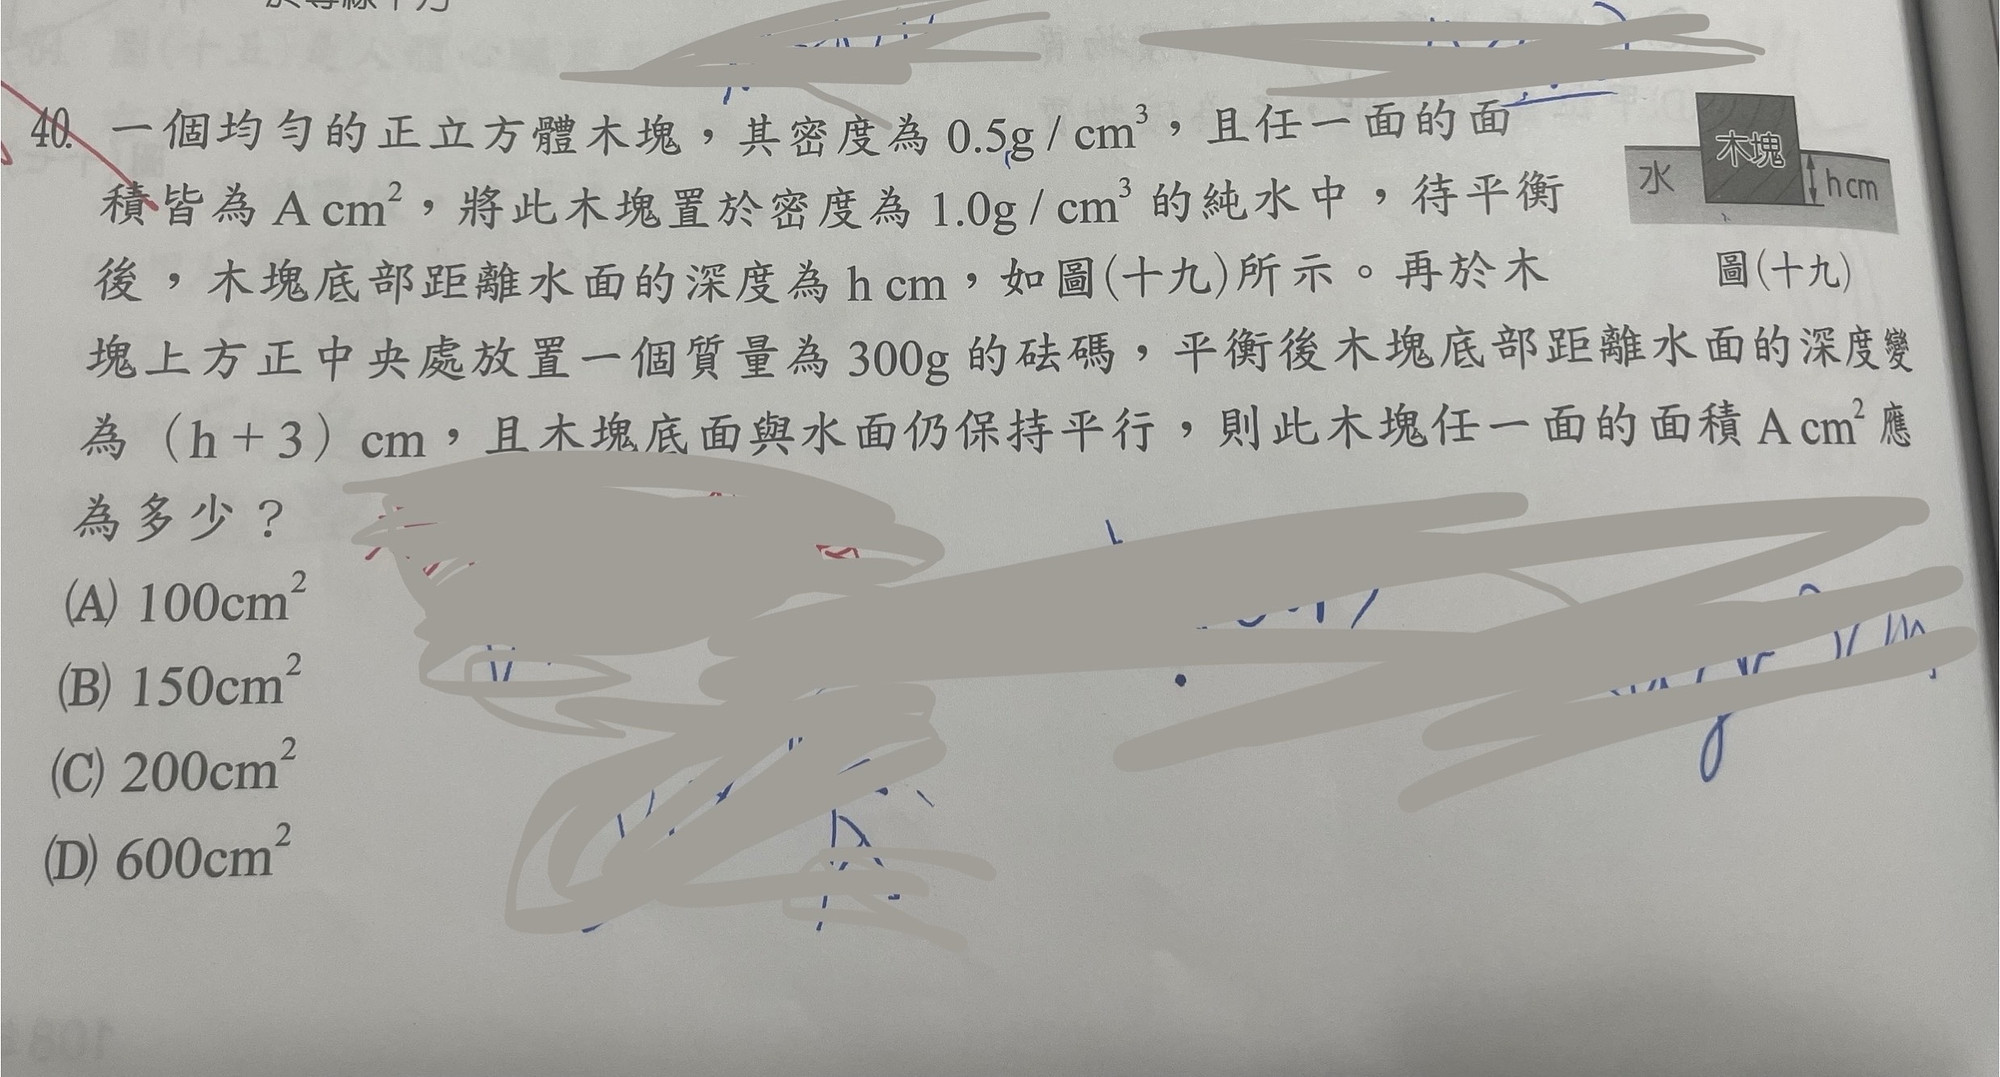 40. 一個均勻的正立方體木塊，其密度為 0.5g / cm³，且任一面的面
積皆為 A cm²，將此木塊置於密度為 1.0g / cm³ 的純水中，待平衡
後，木塊底部距離水面的深度為 h cm，如圖(十九)所示。再於木
塊上方正中央處放置一個質量為 300g 的砝碼，平衡後木塊底部距離水面的深度變
為（h + 3）cm，且木塊底面與水面仍保持平行，則此木塊任一面的面積 A cm² 應
為多少？
木塊
水
h cm
圖(十九)
(A) 100cm²
(B) 150cm²
(C) 200cm²
(D) 600cm²